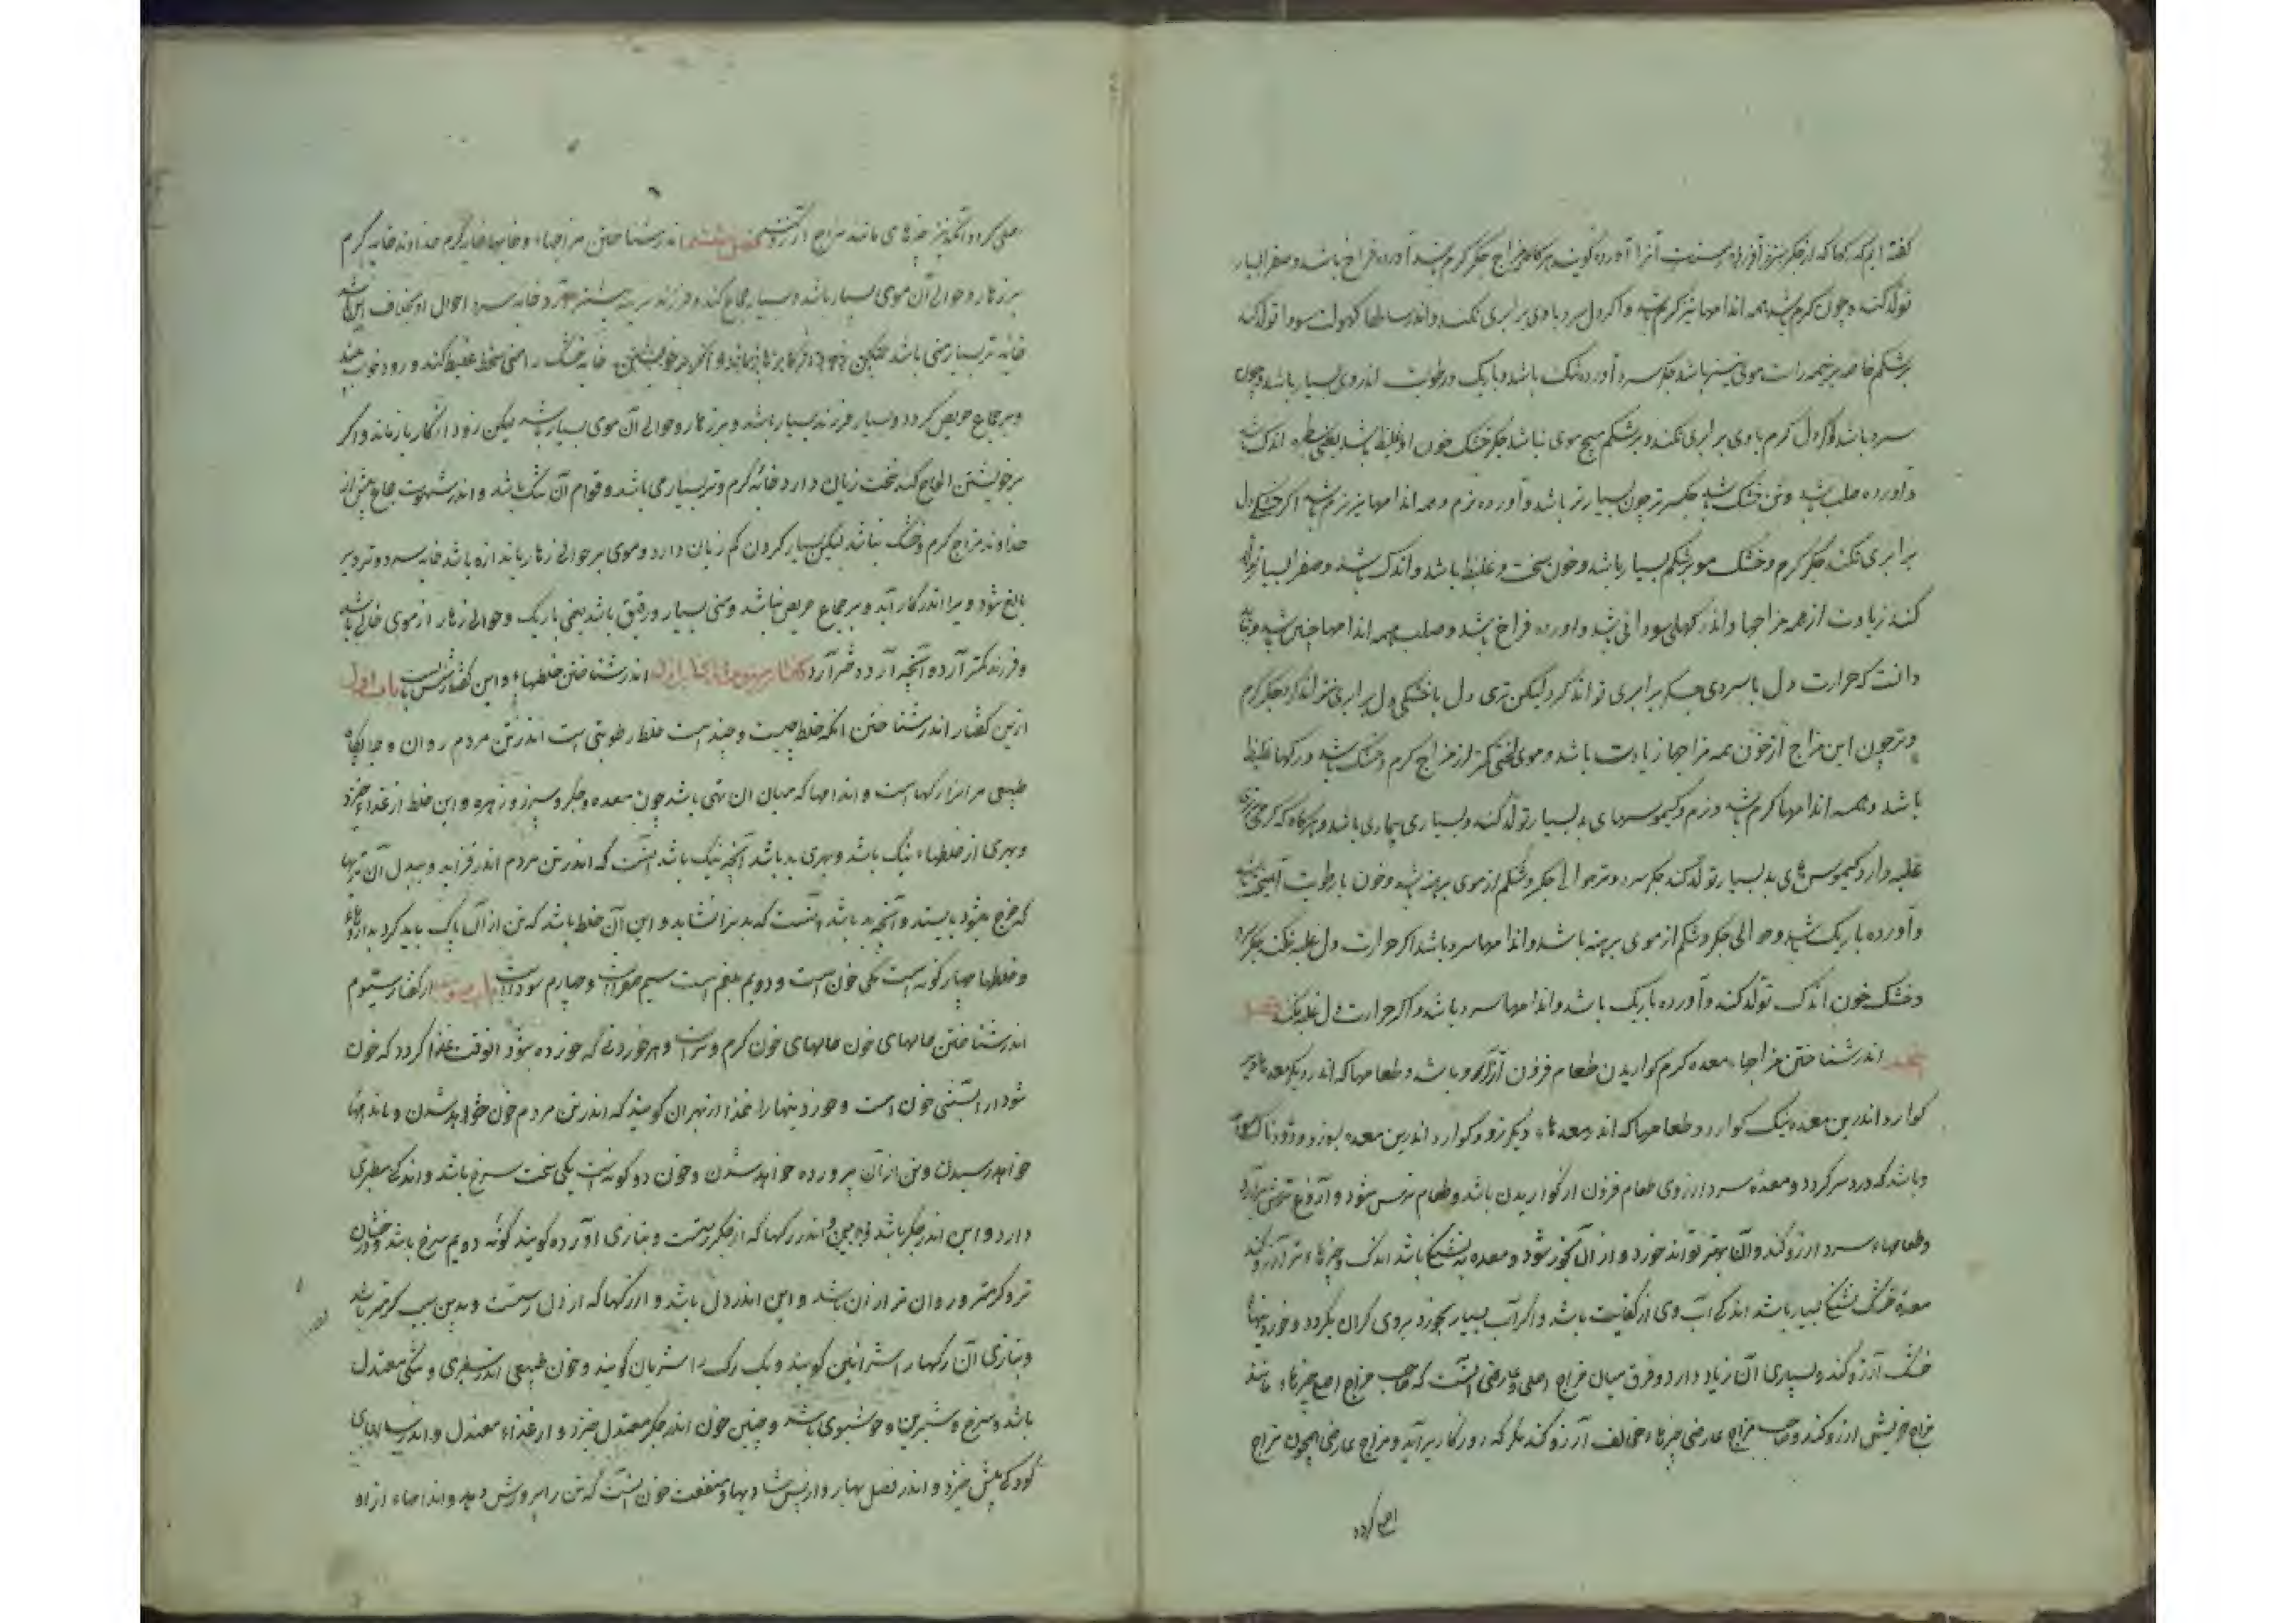 گفته ایم که رگها که از جگر آورده رست آنرا آورده گویند هرگاه مزاج جگر گرم شد آورده فراخ باشد و صفرا بسیار
تولد کند و چون گرم شد همه اندامها نیز گرم شد و اگر دل سرد با وی برابری نکند و اندر سالها کهولت سودا تولد کند
بر شکم خاصه موی بیشتر باشد جگر سرد آورده تنک باشد و باریک و رطوبت اندر وی بسیار باشد و چون
سرد باشد اگر دل گرم با وی برابری نکند و بر شکم هیچ موی نباشد جگر خشک خون او غلیظ باشد اندک باشد
و آورده صلب باشد و تن خشک باشد جگر تر چون بسیار تر باشد و آورده نرم و همه اندامها نیز نرم باشد اگر خشکی دل
برابری نکند جگر گرم و خشک مو بر شکم بسیار باشد و خون سخت و غلیظ باشد و اندک باشد و صفرا بسیار تولد
کند زیادت از همه مزاجها و اندر کهلی سودائی شد و آورده فراخ باشد و صلب همه اندامها چنین شد و بباید
دانست که حرارت دل با سردی جگر برابری تواند کرد لیکن تری دل با خشکی دل برابری نتواند کرد جگر گرم
و تر چون این مزاج از خون همه مزاجها زیادت باشد و موی لختی کمتر از مزاج گرم و خشک باشد و رگها غلیظ
باشد و همه اندامها گرم باشد و نرم و کیموسهای بد بسیار تولد کند و بسیاری بیماری باشد و هرگاه که گرمی و تری
غلبه دارد کیموس های بد بسیار تولد کند جگر سرد و تر حوالی جگر و شکم از موی برهنه باشد و خون با رطوبت آمیخته باشد
و آورده باریک باشد و حوالی جگر و شکم از موی برهنه باشد و اندامها سرد باشد اگر حرارت دل غلبه نکند جگر سرد
و خشک خون اندک تولد کند و آورده باریک باشد و اندامها سرد باشد و اگر حرارت دل غلبه نکند فصل
اندر شناختن مزاجهاء معده گرم گواریدن طعام فزون از آرزو باشد و طعامها که اندر دیگر معده ها دیر
گوارد اندرین معده نیک گوارد و طعامها که اندر معده هاء دیگر زود گوارد اندرین معده بسوزد و دودناک
و باشد که درد سر گردد و معده سرد آرزوی طعام فزون از گواریدن باشد و طعام ترش شود و آروغ ترش برآرد
و طعامهاء سرد آرزو کند و آن بهتر تواند خورد و از آن رنجور شود و معده تر تشنگی باشد اندک و چیزهاء تر آرزو کند
معده خشک تشنگی بسیار باشد اندکی آب وی را کفایت باشد و اگر آب بسیار بخورد بروی گران گردد و خوردنیها
خشک آرزو کند و بسیاری آن زیان دارد و فرق میان مزاج اصلی و عارضی آنست که صاحب مزاج اصلی چیزهاء مانند
مزاج خویش آرزو کند و صاحب مزاج عارضی چیزهاء مخالف آرزو کند مگر که روزگار برآید و مزاج عارضی همچون مزاج
اصلی گردد
اصلی گردد آنگه نیز چیزهای مانند مزاج آرزو کند فصل ششم اندر شناختن مزاجهاء و خایها خایه گرم خداوند خایه گرم
بر زهار و حوالی آن موی بسیار باشد و بسیار جماع کند و فرزند نرینه بیشتر آرد و خایه سرد احوال او بخلاف این باشد
خایه تر بسیار منی باشد لیکن خایه خشک را منی سخت غلیظ کند و زود خواب بیند
و بر جماع حریص گردد و بسیار فرزند بسیار باشد و بر زهار و حوالی آن موی بسیار باشد لیکن زود از کار باز ماند و اگر
بر خویشتن الحاح کند سخت زیان دارد خایه گرم و تر بسیار منی باشد و قوام آن تنک باشد و اندر شهوت جماع بیش از
خداوند مزاج گرم و خشک نباشد لیکن بسیار کردن کم زیان دارد و موی بر حوالی زهار باندازه باشد خایه سرد و تر دیر
بالغ شود و دیر اندر کار آید و بر جماع حریص نباشد و منی بسیار و رقیق باشد یعنی باریک و حوالی زهار از موی خالی باشد
و فرزند کمتر آرد و آنچه آرد دختر آرد گفتار سوم از کتاب اول اندر شناختن خلطهاء و این گفتار شش باب است باب اول
ازین گفتار اندر شناختن آنکه خلط چیست و چند است خلط رطوبتی است اندر تن مردم روان و جایگاه
طبیعی مر آنرا رگها است و اندامها که میان آن تهی باشد چون معده و جگر و سپرز و زهره و این خلط از غذاء خیزد
و بهری از خلطهاء نیک باشد و بهری بد باشد آنچه نیک باشد آنست که اندر تن مردم اندر فزاید و ببدل آن تریها
که خرج میشود بایستد و آنچه بد باشد آنست که بدین را نشاید و این آن خلط باشد که تن از آن پاک باید کرد بداروها
و خلطها چهار گونه است یکی خون است و دویم بلغم است سیم صفرا است و چهارم سودا است باب دوم از گفتار سیوم
اندر شناختن حالهای خون حالهای خون گرم و تر است و هر خوردنی که خورده شود آنوقت غذا گردد که خون
شود از آنستی خون است و خوردنیها را غذا از بهر آن گویند که اندر تن مردم خون خواهد شدن و باندامها
خواهد رسیدن و تن از آن پرورده خواهد شدن و خون دو گونه است یکی سخت سرخ باشد و اندکی سطبری
دارد و این اندر جگر باشد و اندر رگها که از جگر رست و بتازی آورده گویند گونه دویم سرخ باشد و درخشان
تر و گرمتر و روان تر از آن باشد و این اندر دل باشد و اندر رگها که از دل رست و بدین سبب گرمتر باشد
و بتازی آن رگها را شرائین گویند و یک رگ را شریان گویند و خون طبیعی اندر سطبری و تنکی معتدل
باشد و سرخ و شیرین و خوشبوی باشد و چنین خون اندر جگر معتدل خیزد و از غذاء معتدل و اندر سالهای
کودکی بیش خیزد و اندر فصل بهار و از پس شادیها و منفعت خون آنست که تن را پرورش دهد و اندامهاء از او